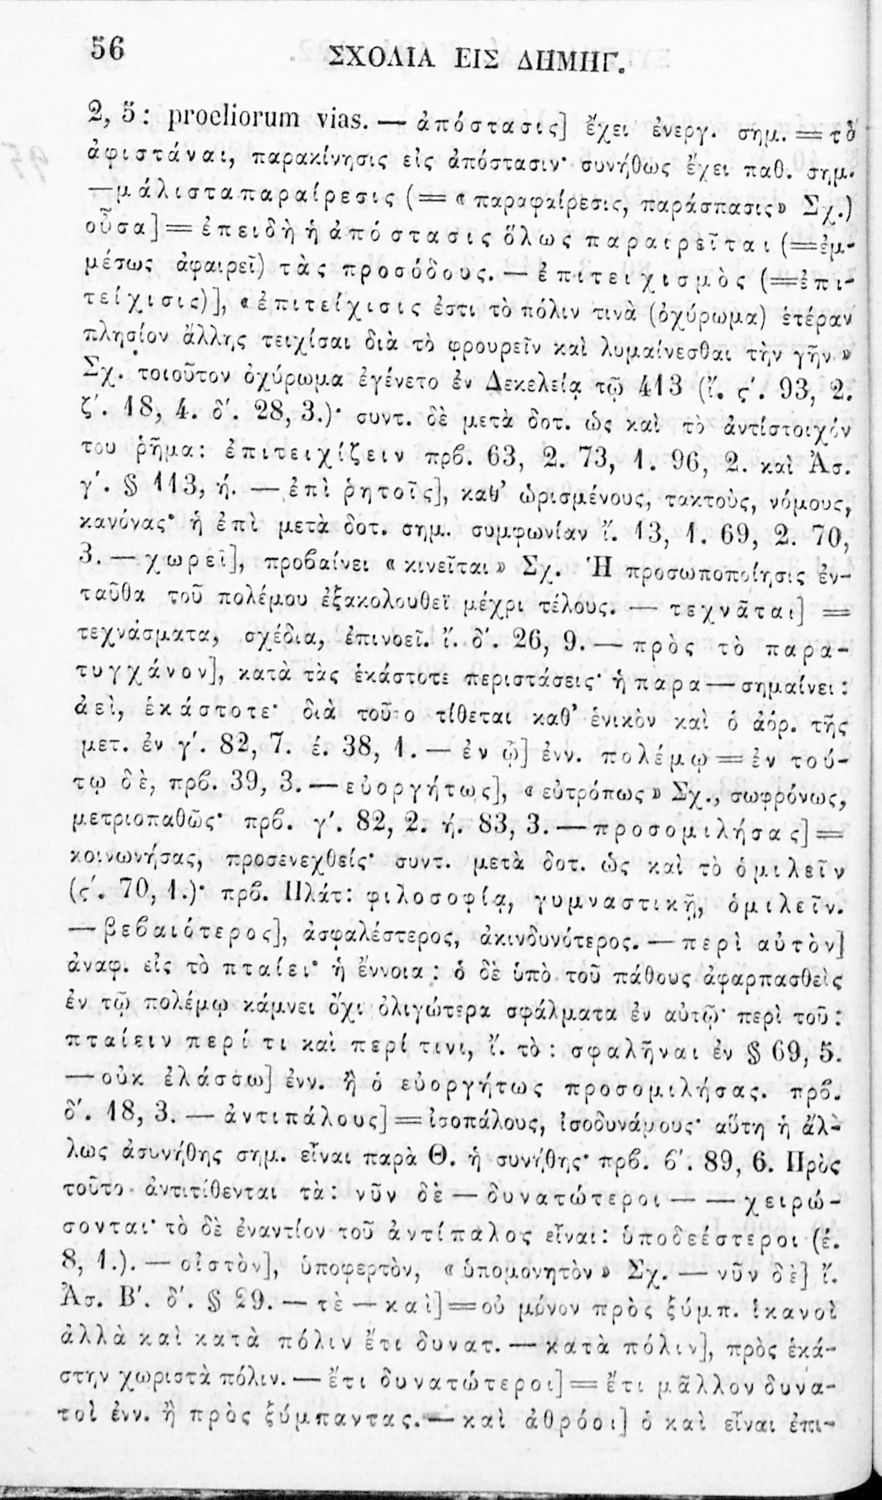 56
ΣΧΟΛΙΑ ΕΙΣ ΔΗΜΗΓ.
2, 5: proeliorum vias. — ἀπόστασις] ἔχει ἐνεργ. σημ. = τὸ
ἀφιστάναι, παρακίνησις εἰς ἀπόστασιν· συνήθως ἔχει παθ. σημ.
— μάλιστα παραίρεσις (= « παραφαίρεσις, παράσπασις» Σχ.)
οὖσα] = ἐπειδὴ ἡ ἀπόστασις ὅλως παραιρεῖται (= ἐμ-
μέσως ἀφαιρεῖ) τὰς προσόδους. — ἐπιτειχισμὸς (= ἐπι-
τείχισις)], « ἐπιτείχισις ἐστι τὸ πόλιν τινὰ (ὀχύρωμα) ἑτέραν
πλησίον ἄλλης τειχίσαι διὰ τὸ φρουρεῖν καὶ λυμαίνεσθαι τὴν γῆν »
Σχ. τοιοῦτον ὀχύρωμα ἐγένετο ἐν Δεκελείᾳ τῷ 413 (ἴ. ς΄. 93, 2.
ζ΄. 18, 4. δ΄. 28, 3.)· συντ. δὲ μετὰ δοτ. ὡς καὶ τὸ ἀντίστοιχόν
του ῥῆμα: ἐπιτειχίζειν πρβ. 63, 2. 73, 1. 96, 2. καὶ Ἀσ.
γ΄. § 113, ή. — ἐπὶ ῥητοῖς], καθ' ὡρισμένους, τακτοὺς, νόμους,
κανόνας· ἡ ἐπὶ μετὰ δοτ. σημ. συμφωνίαν ἴ. 13, 1. 69, 2. 70,
3. — χωρεῖ], προβαίνει « κινεῖται » Σχ. Ἡ προσωποποίησις ἐν-
ταῦθα τοῦ πολέμου ἐξακολουθεῖ μέχρι τέλους. — τεχνᾶται] =
τεχνάσματα, σχέδια, ἐπινοεῖ. ἴ. δ΄. 26, 9. — πρὸς τὸ παρα-
τυγχάνον], κατὰ τὰς ἑκάστοτε περιστάσεις· ἡ παρα — σημαίνει:
ἀεὶ, ἑκάστοτε· διὰ τοῦτο τίθεται καθ' ἑνικὸν καὶ ὁ ἀόρ. τῆς
μετ. ἐν γ΄. 82, 7. έ. 38, 1. — ἐν ᾧ] ἐνν. πολέμῳ = ἐν τού-
τῳ δὲ, πρβ. 39, 3. — εὐοργήτως], « εὐτρόπως » Σχ., σωφρόνως,
μετριοπαθῶς· πρβ. γ΄. 82, 2. ή. 83, 3. — προσομιλήσας] =
κοινωνήσας, προσενεχθείς· συντ. μετὰ δοτ. ὡς καὶ τὸ ὁμιλεῖν
(ς΄. 70, 1.)· πρβ. Πλάτ: φιλοσοφίᾳ, γυμναστικῇ, ὁμιλεῖν.
— βεβαιότερος], ἀσφαλέστερος, ἀκινδυνότερος. — περὶ αὐτὸν]
ἀναφ. εἰς τὸ πταίει· ἡ ἔννοια: ὁ δὲ ὑπὸ τοῦ πάθους ἀφαρπασθεὶς
ἐν τῷ πολέμῳ κάμνει ὄχι ὀλιγώτερα σφάλματα ἐν αὐτῷ· περὶ τοῦ:
πταίειν περί τι καὶ περί τινι, ἴ. τὸ: σφαλῆναι ἐν § 69, 5.
— οὐκ ἐλάσσω] ἐνν. ἢ ὁ εὐοργήτως προσομιλήσας. πρβ.
δ΄. 18, 3. — ἀντιπάλους] = ἰσοπάλους, ἰσοδυνάμους· αὕτη ἡ ἄλ-
λως ἀσυνήθης σημ. εἶναι παρὰ Θ. ἡ συνήθης· πρβ. β΄. 89, 6. Πρὸς
τοῦτο ἀντιτίθενται τὰ: νῦν δὲ — δυνατώτεροι — — χειρώ-
σονται· τὸ δὲ ἐναντίον τοῦ ἀντίπαλος εἶναι: ὑποδεέστεροι (έ.
8, 1.). — οἰστὸν], ὑποφερτὸν, « ὑπομονητὸν » Σχ. — νῦν δὲ] ἴ.
Ἀσ. Β΄. δ΄. § 29. — τὲ — καὶ] = οὐ μόνον πρὸς ξύμπ. ἱκανοὶ
ἀλλὰ καὶ κατὰ πόλιν ἔτι δυνατ. — κατὰ πόλιν], πρὸς ἑκά-
στην χωριστὰ πόλιν. — ἔτι δυνατώτεροι] = ἔτι μᾶλλον δυνα-
τοὶ ἐνν. ἢ πρὸς ξύμπαντας. — καὶ ἀθρόοι] ὁ καὶ εἶναι ἐπι-